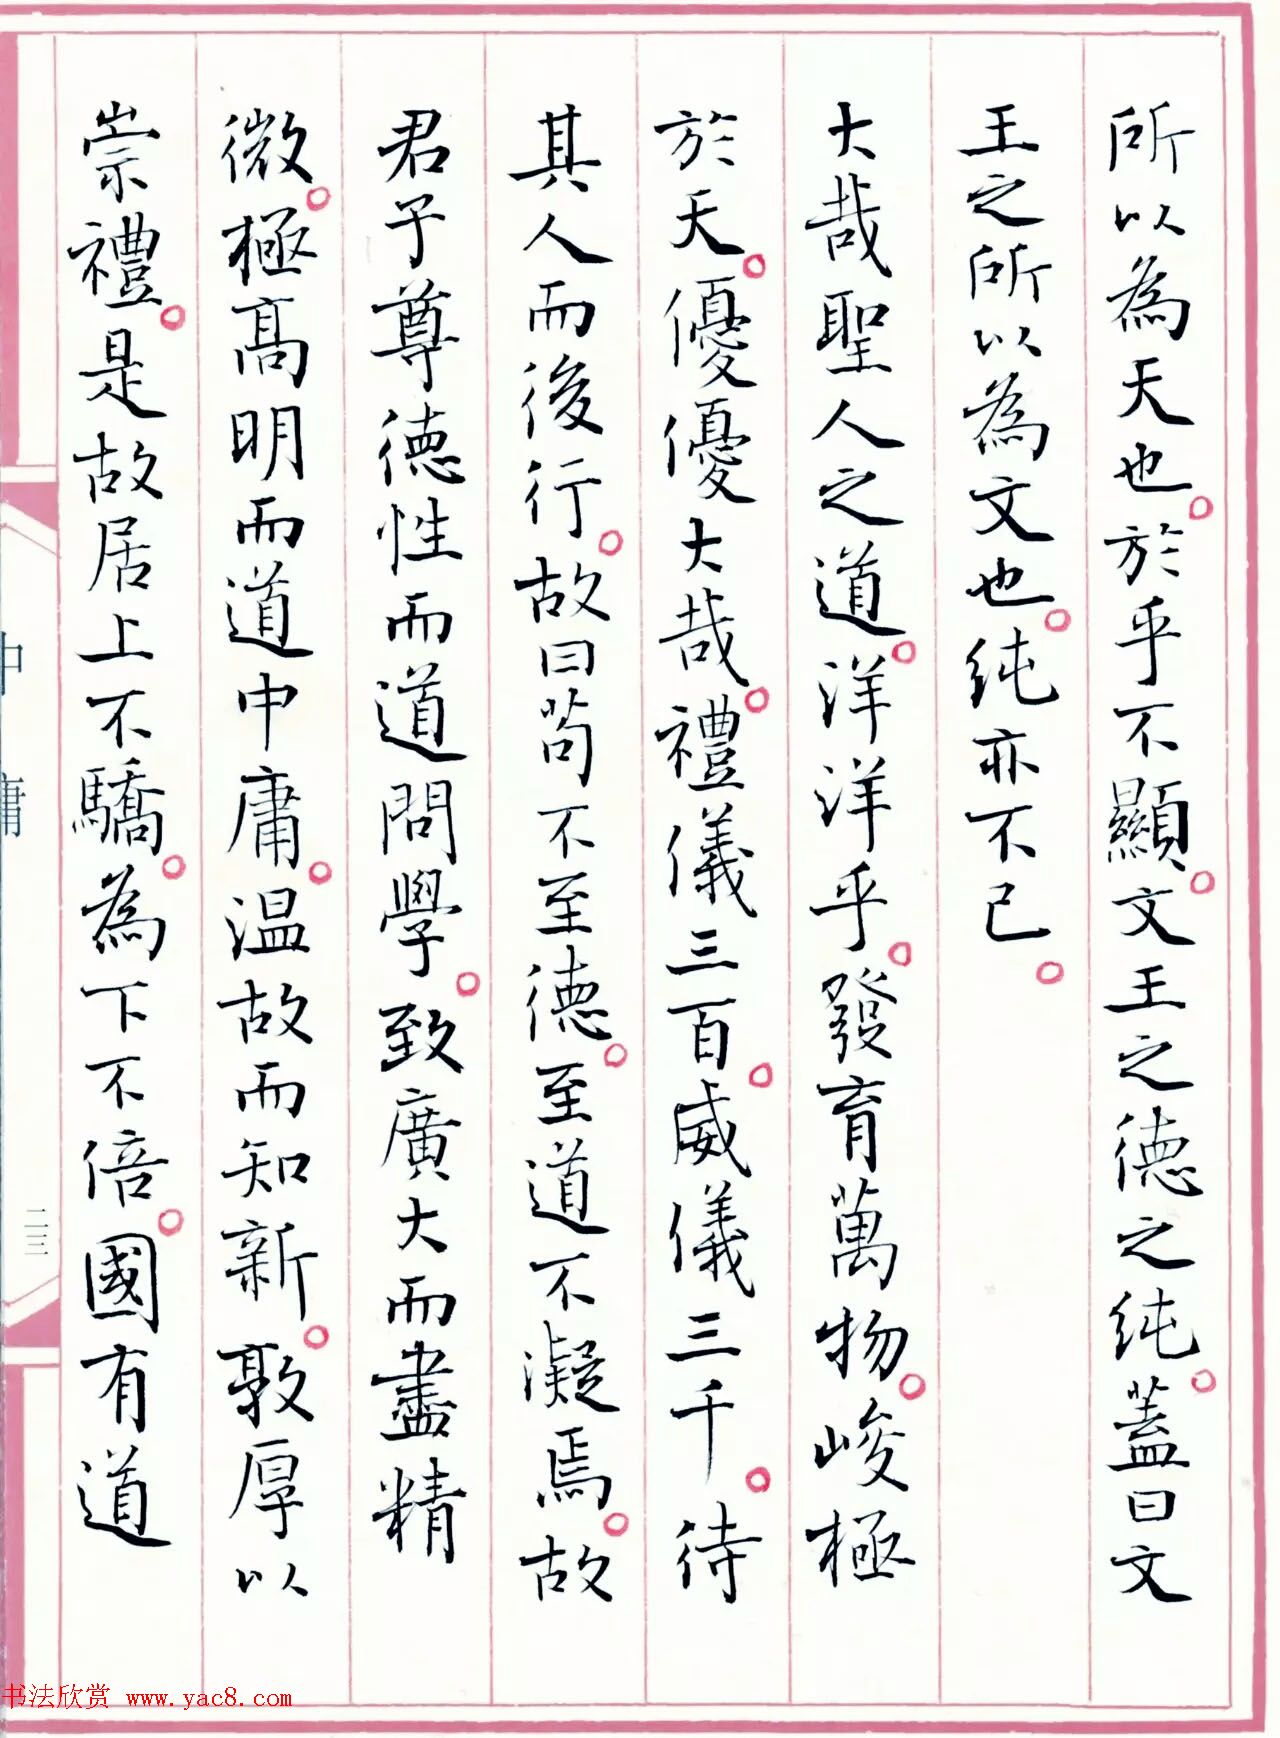 所以為天也。於乎不顯。文王之德之純。蓋曰文
王之所以為文也。純亦不已。
大哉聖人之道。洋洋乎。發育萬物。峻極
於天。優優大哉。禮儀三百。威儀三千。待
其人而後行。故曰苟不至德。至道不凝焉。故
君子尊德性而道問學。致廣大而盡精
微。極高明而道中庸。温故而知新。敦厚以
崇禮。是故居上不驕。為下不倍。國有道
中庸
二三
书法欣赏 www.yac8.com